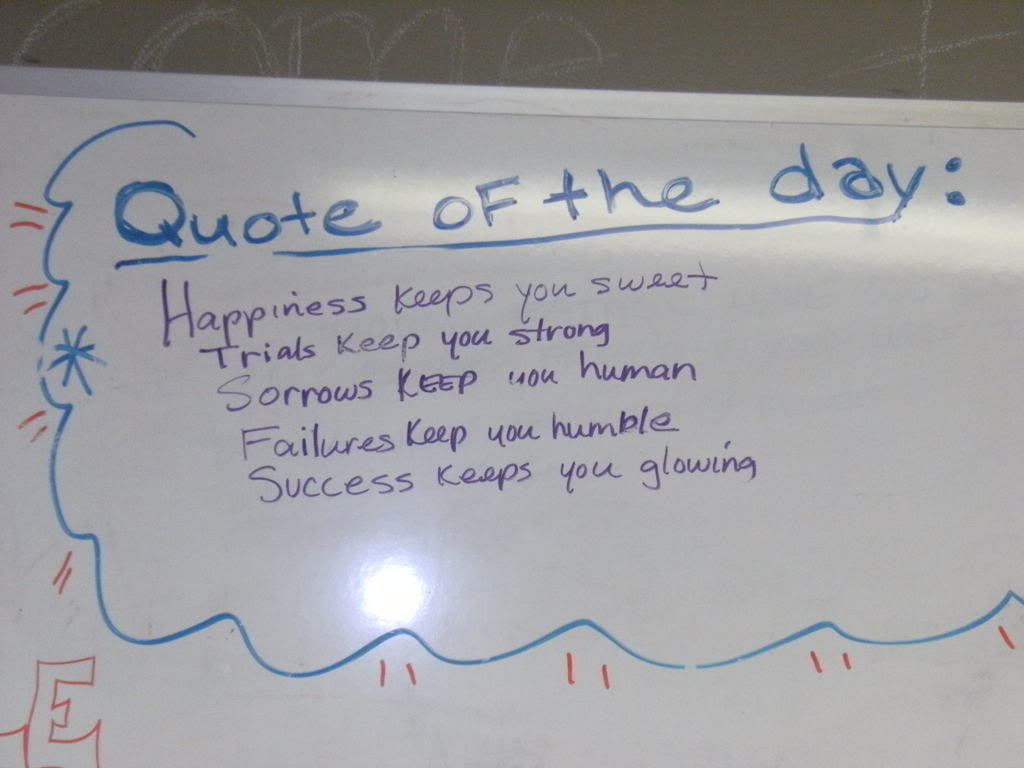 Quote of the day:
Happiness keeps you sweet
Trials keep you strong
Sorrows KEEP you human
Failures keep you humble
Success keeps you glowing
E